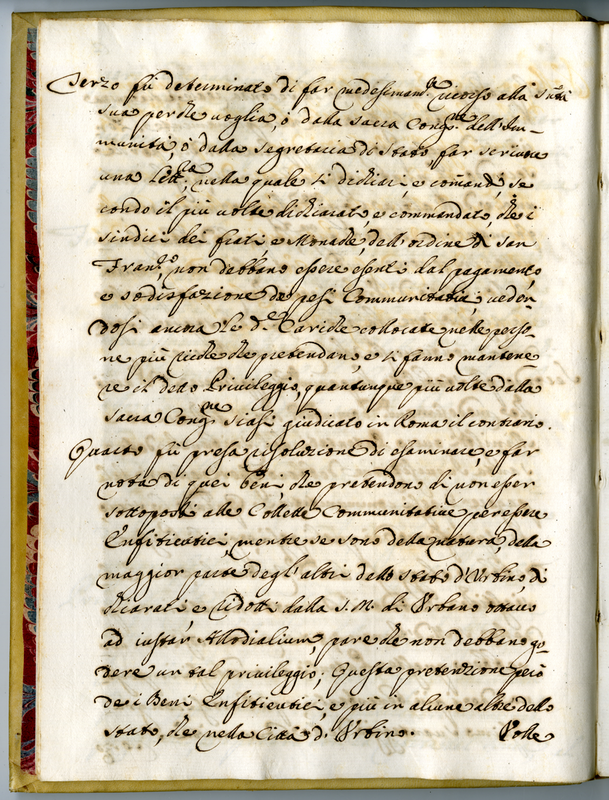 Terzo fù determinato di far medesimam.te ricorso alla S.ntà
sua perche voglia, ò dalla sacra Cong.ne dell'Im-
munità, ò dalla segretaria di stato, far scrivere
una lett.ra, nella quale si dichiari, e comandi, se
condo il più volte dichiarato e commandato, che i
sindici dei frati e Monache, dell'ordine di san
Fran.co, non debbano essere esenti dal pagamento,
e sodisfazione de pesi Communitativi, veden-
dosi ancora le d.e Cariche collocate nelle perso-
ne più ricche che pretendano, e si fanno mantene
re il detto Privileggio, quantunque più volte dalla
sacra Cong.ne siasi giudicato in Roma il contrario.
Quarto fù presa risoluzione di esaminare, e far
nota di quei beni, che pretendono di non esser
sottoposti alle Collette Communitative per essere
Enfiteutici, mentre se sono della natura, della
maggior parte degl'altri dello stato d'Urbino, di
chiarati e ridotti dalla S. M. di Urbano ottavo
ad instar Allodialium, pare che non debbano go-
dere un tal privileggio; Questa pretenzione però
de i Beni Enfiteutici, e più in alcune altre dello
stato, che nella Città d'Urbino.
Volle